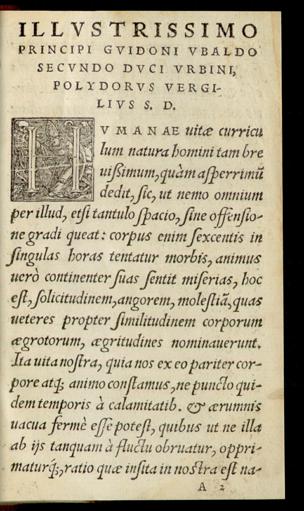 ILLVSTRISSIMO
PRINCIPI GVIDONI VBALDO
SECVNDO DVCI VRBINI,
POLYDORVS VERGI-
LIVS S. D.
HVMANAE uitæ curricu
lum natura homini tam bre
uißimum, quàm aſperrimũ
dedit, ſic, ut nemo omnium
per illud, etſi tantulo ſpacio, ſine offenſio-
ne gradi queat: corpus enim ſexcentis in
ſingulas horas tentatur morbis, animus
uerò continenter ſuas ſentit miſerias, hoc
eſt, ſolicitudinem, angorem, moleſtiã, quas
ueteres propter ſimilitudinem corporum
ægrotorum, ægritudines nominauerunt.
Ita uita noſtra, quia nos ex eo pariter cor-
pore atq; animo conſtamus, ne puncto qui-
dem temporis à calamitatib. & ærumnis
uacua fermè eſſe poteſt, quibus ut ne illa
ab ijs tanquam à fluctu obruatur, oppri-
maturq́;, ratio quæ inſita in noſtra eſt na-
A 2